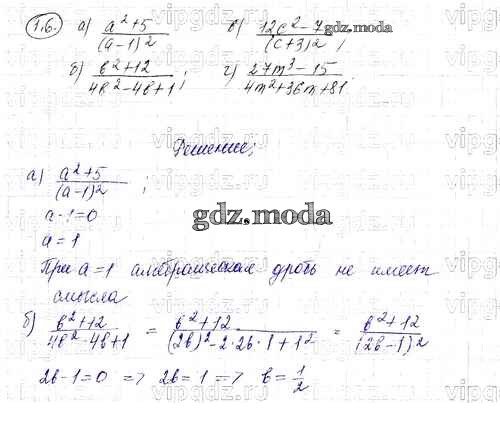 1.6. а) (a²+5)/(a-1)² в) (12c²-7)/(c+3)²;
б) (b²+12)/(4b²-4b+1); г) (27m³-15)/(4m²+36m+81).
Решение;
а) (a²+5)/(a-1)²;
a-1=0
a=1
При a=1 алгебраическая дробь не имеет
смысла
б) (b²+12)/(4b²-4b+1) = (b²+12)/((2b)²-2·2b·1+1²) = (b²+12)/(2b-1)²
2b-1=0 => 2b=1 => b=1/2
gdz.moda
gdz.moda
vipgdz.ru